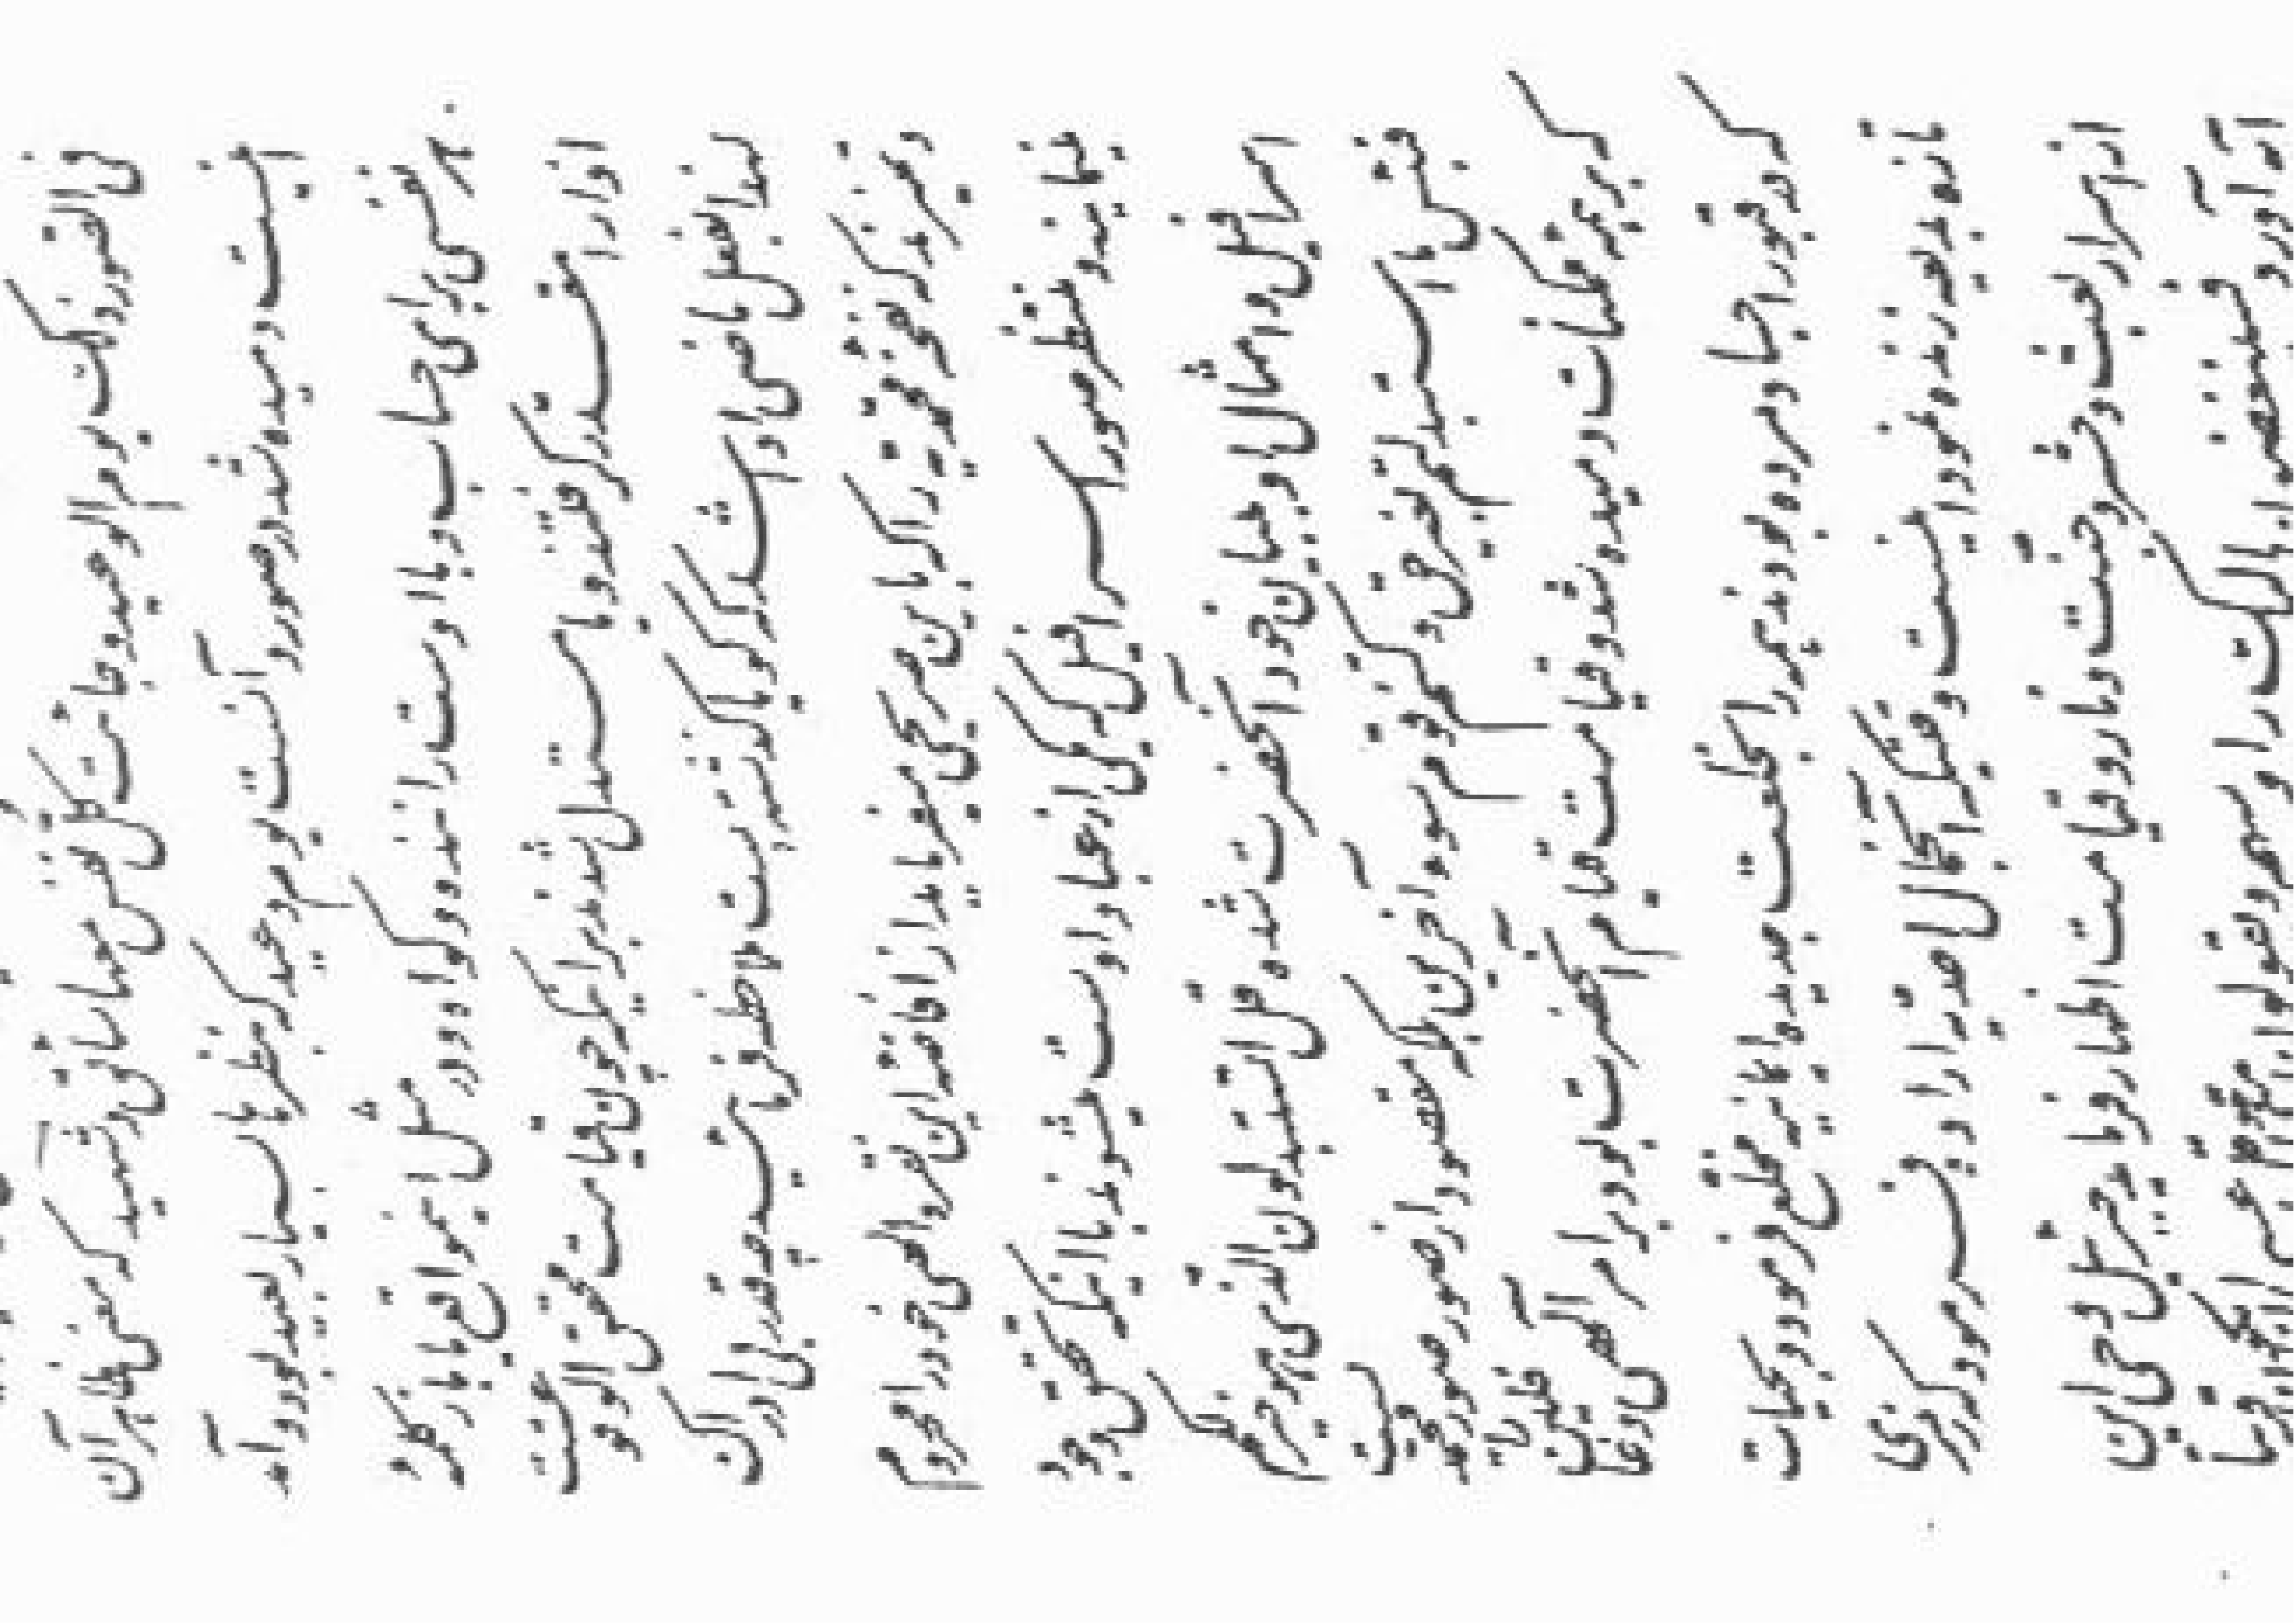 فی الصور ذلک یوم الوعید و جائت کل نفس معها سائق و شهید که معنی ظاهر آن
اینست و دمیده شد در صور و آنست یوم وعید که بنظرها بسیار بعید بود و آمد
هر نفسی برای حساب و با اوست راننده و گواه و در مثل این مواقع یا کلمهٔ
اذا را مقدر گرفتند و یا مستدل شدند بر اینکه چون قیامت محقق الوقوعست
لهذا بفعل ماضی ادا شد که گویا گذشته است ملاحظه فرمائید چقدر بی ادراک
و تمیزند نفخهٔ محمدیه را که باین صریحی میفرماید ادراک نمیکنند و از افاضهٔ این نقرهٔ الهی خود را محروم
مینمایند و منتظر صور اسرافیل که یکی از عباد اوست میشوند با اینکه تحقق وجود
اسرافیل و امثال او ببیان خود آنحضرت شده قل اتستبدلون الذی هو خیر لکم
فبئس ما استبدلتم بغیر حق و کنتم قوم سوء اخسرین بلکه مقصود از صور صور محمدیست
که بر همه ممکنات دمیده شد و قیامت قیام آنحضرت بود بر امر الهی و غافلین
که در قبور اجساد مرده بودند همه را بخلعت جدیدهٔ ایمانیه مخلع فرمود و بحیات
تازه بدیعه زنده نمود اینست وقتیکه آنجمال احدیه اراده فرمود که رمزی
از اسرار بعث و حشر و جنت و نار و قیامت اظهار فرماید جبرئیل وحی این
آیه آورد فسینغضون الیک رؤسهم و یقولون متی هو قل عسی ان یکون قریبا